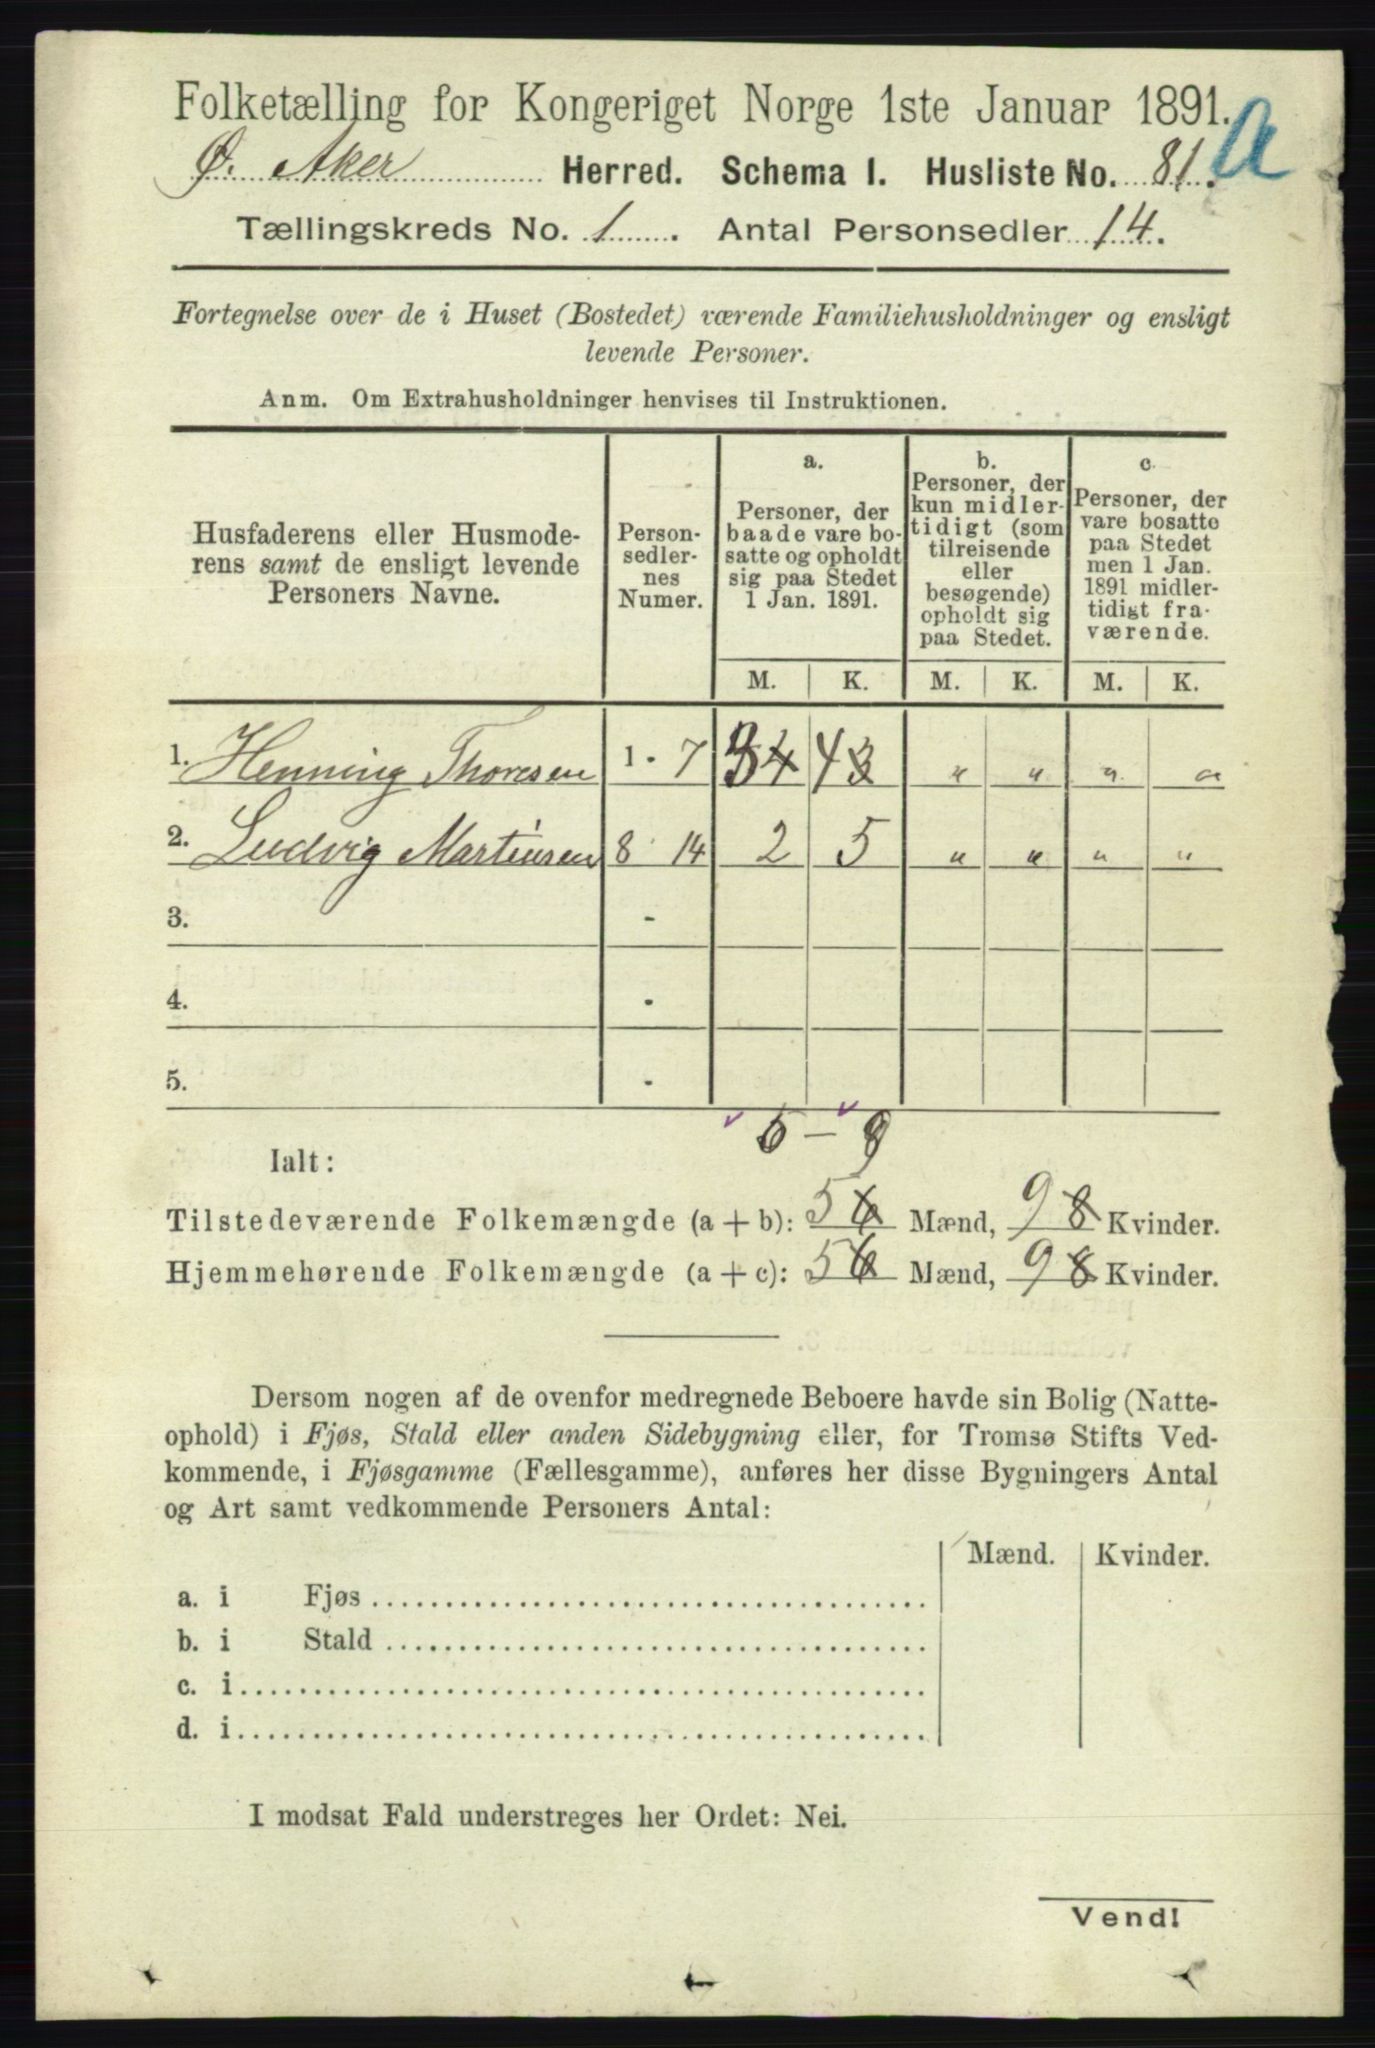 Folketælling for Kongeriget Norge 1ste Januar 1891.
a
Ø. Aker Herred. Schema I. Husliste No. 81.
Tællingskreds No. 1. Antal Personsedler 14.
Fortegnelse over de i Huset (Bostedet) værende Familiehusholdninger og ensligt
levende Personer.
Anm. Om Extrahusholdninger henvises til Instruktionen.
Husfaderens eller Husmode-
rens samt de ensligt levende
Personers Navne.
Person-
sedler-
nes
Numer.
a.
Personer, der
baade vare bo-
satte og opholdt
sig paa Stedet
1 Jan. 1891.
b.
Personer, der
kun midler-
tidigt (som
tilreisende
eller
besøgende)
opholdt sig
paa Stedet.
c.
Personer, der
vare bosatte
paa Stedet
men 1 Jan.
1891 midler-
tidigt fra-
værende.
M. K. M. K. M. K.
1. Henning Thoresen 1 - 7 3 4 4 3 " " " "
2. Ludvig Martinsen 8 - 14 2 5 " " " "
3. -
4. -
5. -
5 - 9
Ialt:
Tilstedeværende Folkemængde (a + b): 5 6 Mænd, 9 8 Kvinder.
Hjemmehørende Folkemængde (a + c): 5 6 Mænd, 9 8 Kvinder.
Dersom nogen af de ovenfor medregnede Beboere havde sin Bolig (Natte-
ophold) i Fjøs, Stald eller anden Sidebygning eller, for Tromsø Stifts Ved-
kommende, i Fjøsgamme (Fællesgamme), anføres her disse Bygningers Antal
og Art samt vedkommende Personers Antal:
Mænd. Kvinder.
a. i Fjøs
b. i Stald
c. i
d. i
I modsat Fald understreges her Ordet: Nei.
Vend!